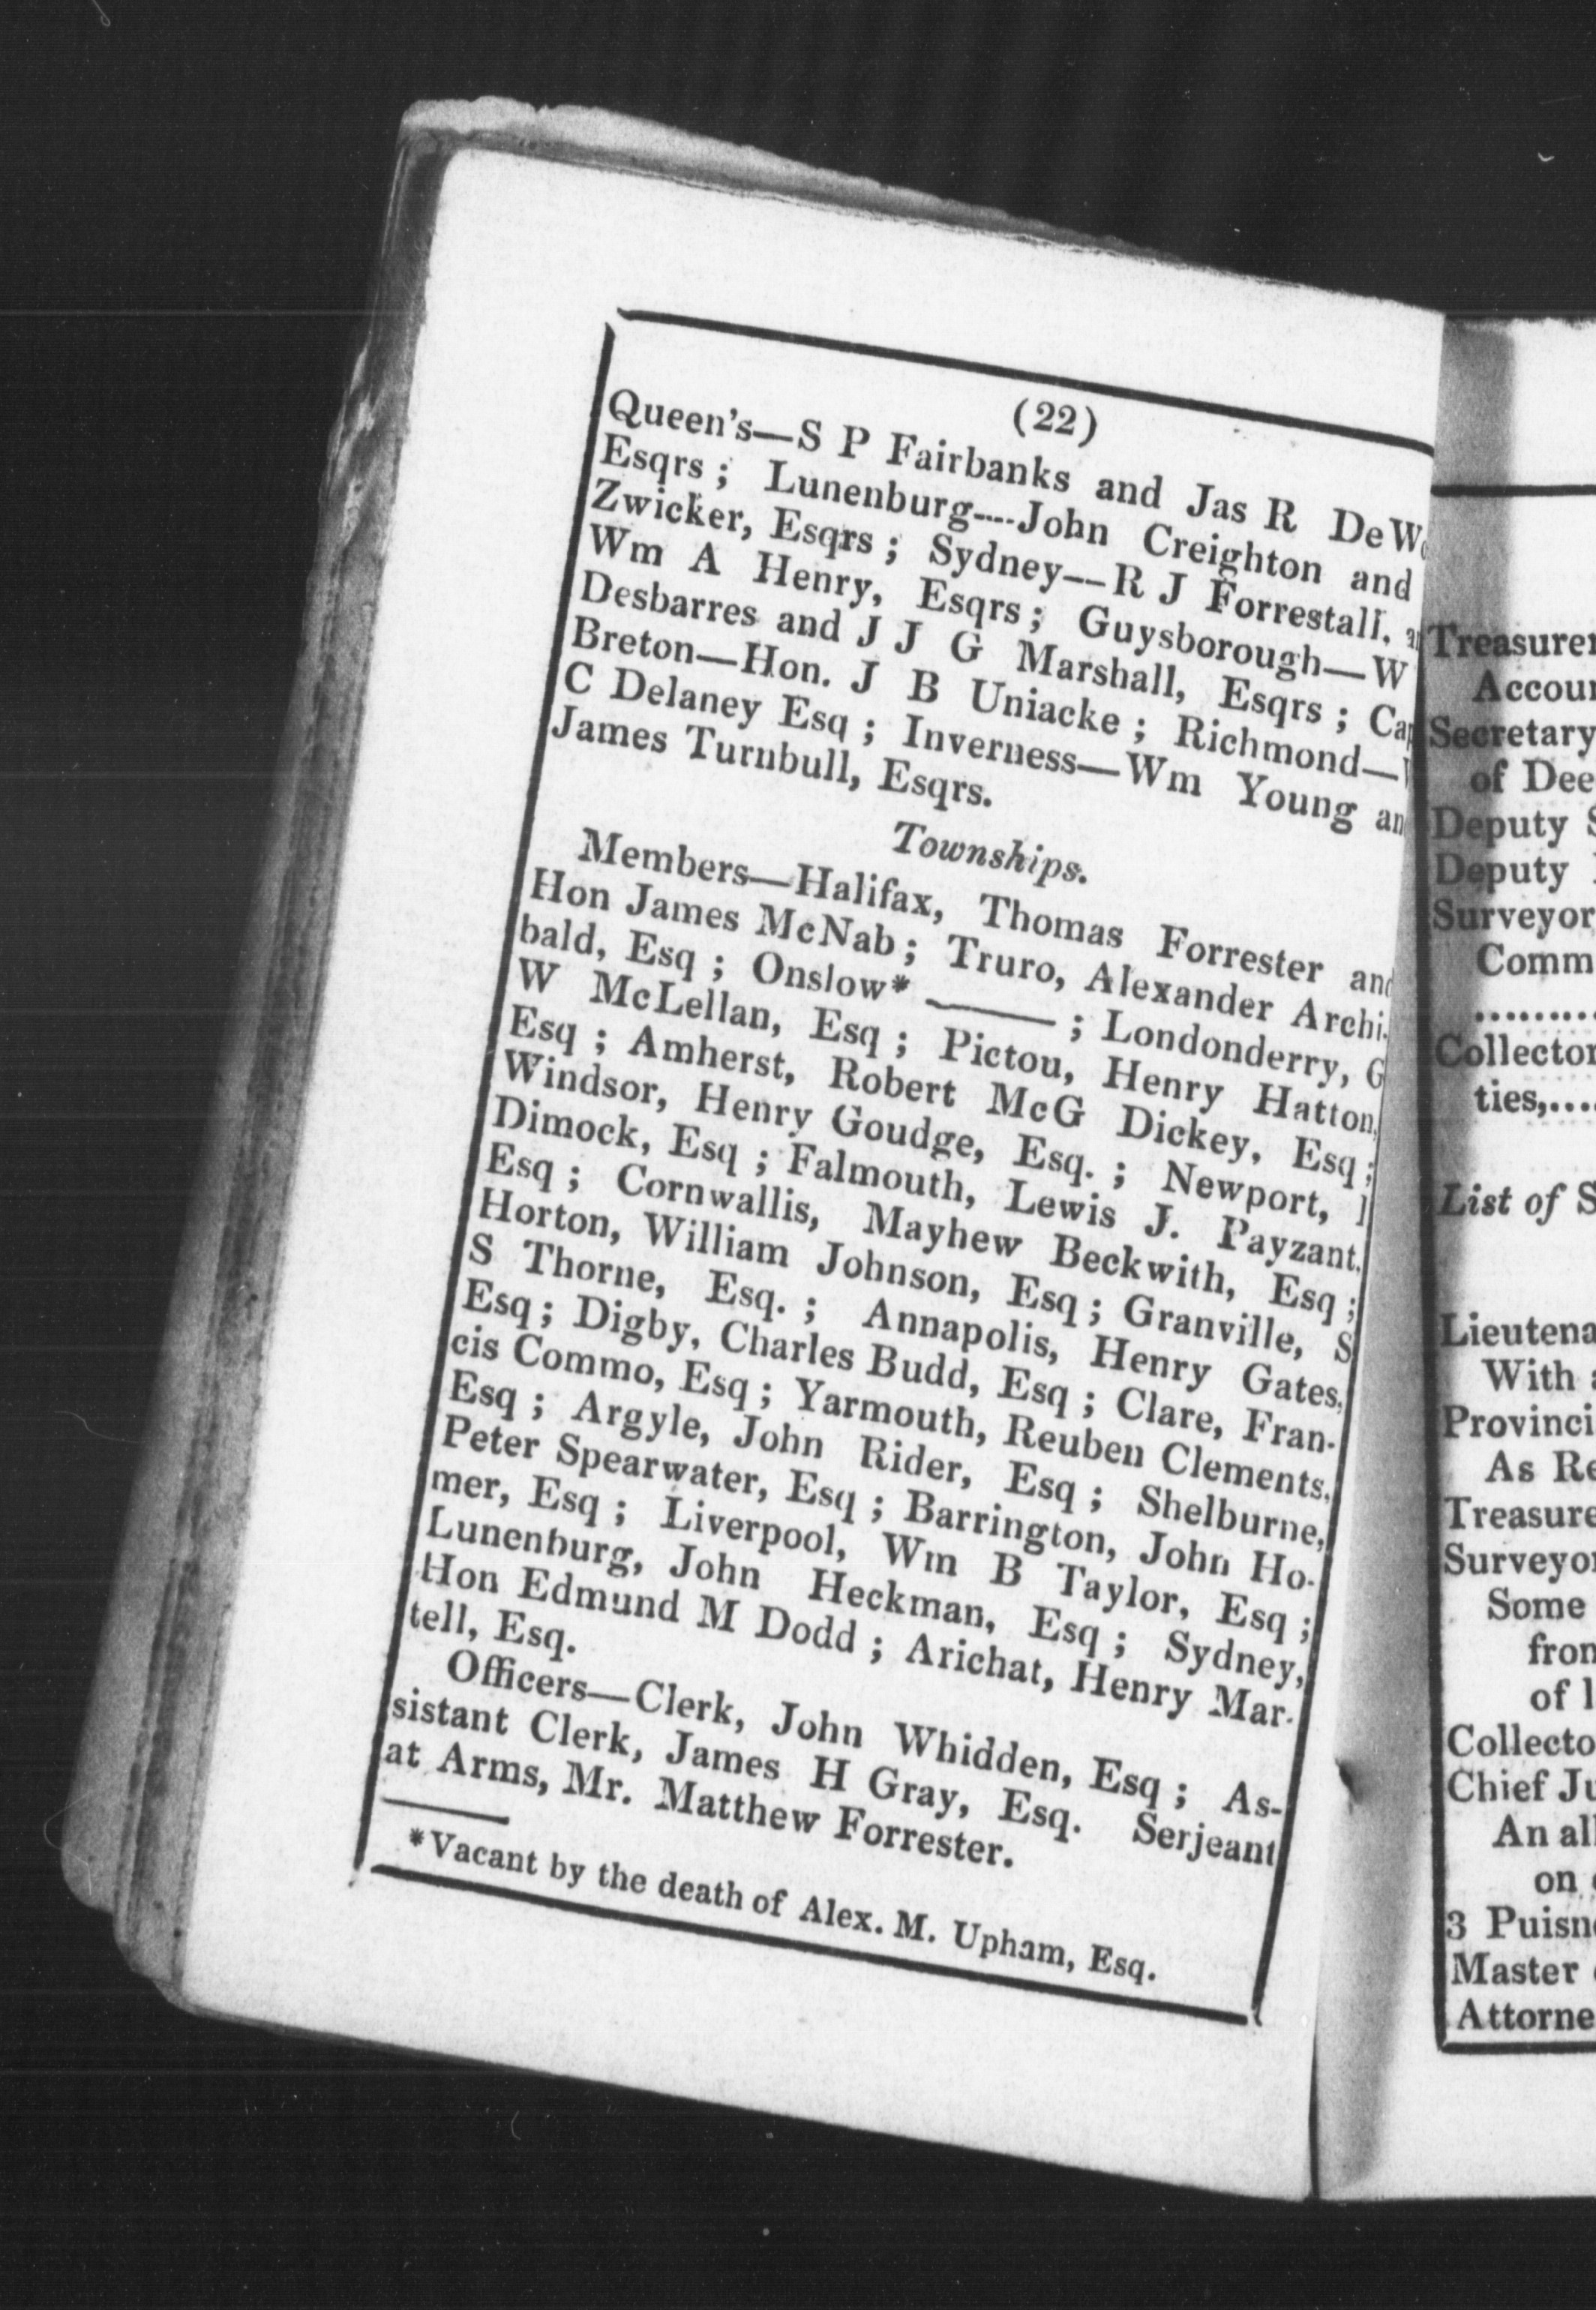 (22)
Queen's—S P Fairbanks and Jas R
Esqrs ; Lunenburg----John Creighton and
Zwicker, Esqrs ; Sydney--R J Forrestall,
Wm A Henry, Esqrs; Guysborough—W
Desbarres and J J G Marshall, Esqrs ;
Breton—Hon. J B Uniacke ; Richmond—
C Delaney Esq ; Inverness—Wm Young
James Turnbull, Esqrs.
Townships.
Members—Halifax, Thomas Forrester and
Hon James McNab ; Truro, Alexander Archi-
bald, Esq ; Onslow* ——— ; Londonderry, G
W McLellan, Esq ; Pictou, Henry Hatton,
Esq ; Amherst, Robert McG Dickey, Esq ;
Windsor, Henry Goudge, Esq. ; Newport,
Dimock, Esq ; Falmouth, Lewis J. Payzant,
Esq ; Cornwallis, Mayhew Beckwith, Esq ;
Horton, William Johnson, Esq ; Granville, S
S Thorne, Esq. ; Annapolis, Henry Gates,
Esq ; Digby, Charles Budd, Esq ; Clare, Fran-
cis Commo, Esq ; Yarmouth, Reuben Clements,
Esq ; Argyle, John Rider, Esq ; Shelburne,
Peter Spearwater, Esq ; Barrington, John Ho-
mer, Esq ; Liverpool, Wm B Taylor, Esq ;
Lunenburg, John Heckman, Esq ; Sydney,
Hon Edmund M Dodd ; Arichat, Henry Mar-
tell, Esq.
Officers—Clerk, John Whidden, Esq ; As-
sistant Clerk, James H Gray, Esq. Serjeant
at Arms, Mr. Matthew Forrester.
*Vacant by the death of Alex. M. Upham, Esq.
Treasurer
Secretary
of
Deputy
Deputy
Surveyor
Comm
.........
Collector
ties,....
List of
With
As
Some
of
Chief
An
on
3
Master